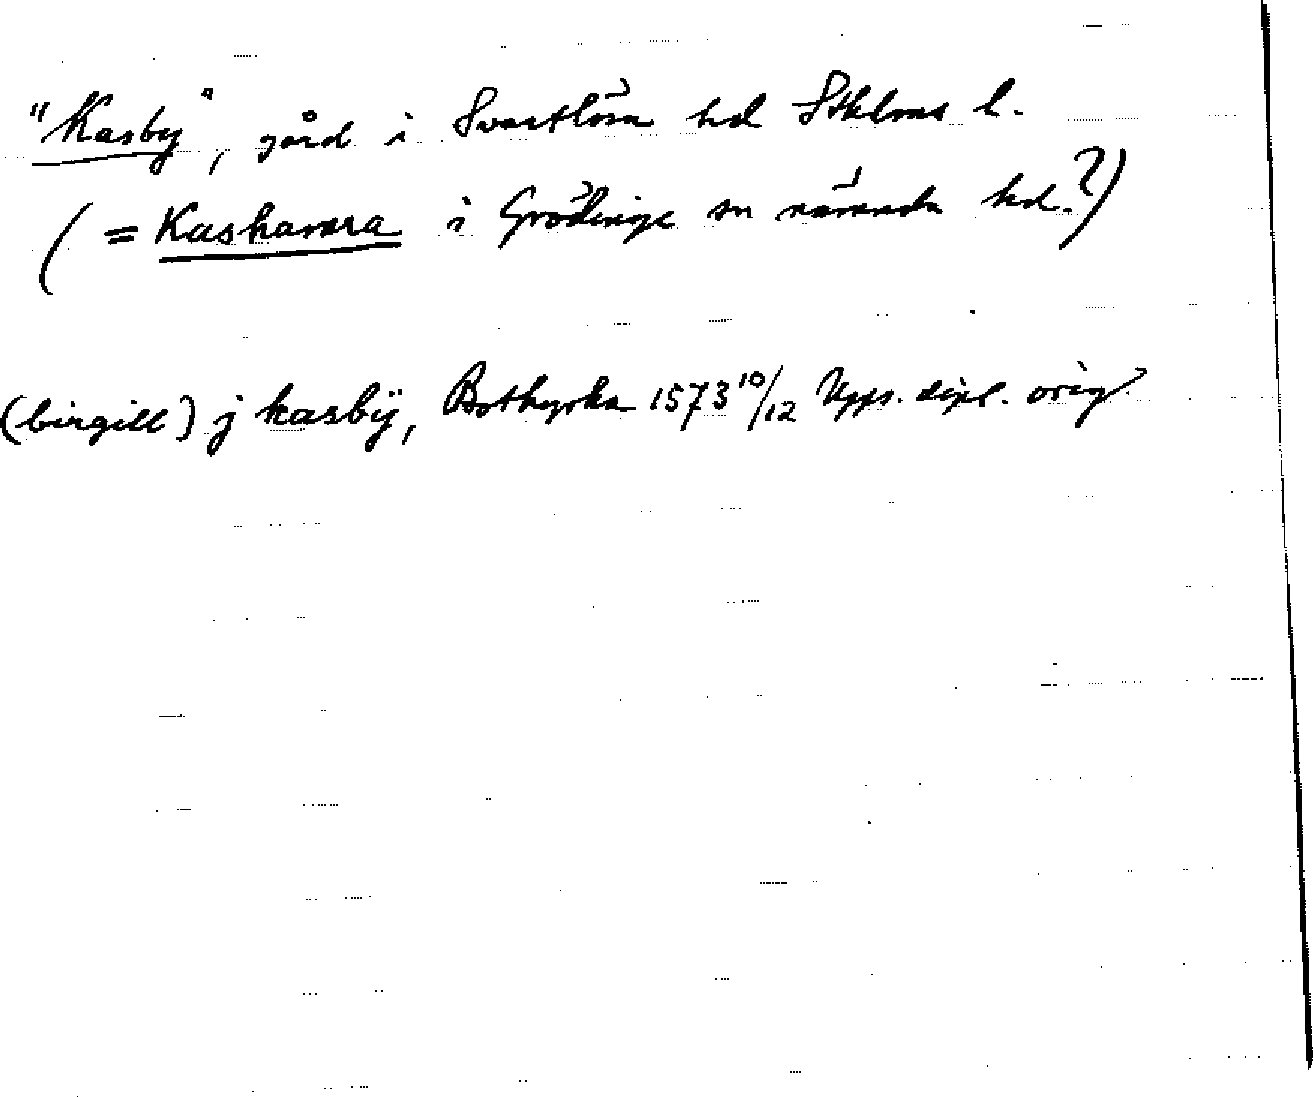 "Kasby", gård i Svartlösa hd Sthlms l.
(= Kashamra i Grödinge sn nämnda hd.?)
(birgill) j kasbÿ, Bothyrka 1573 10/12 Upps. dipl. orig.